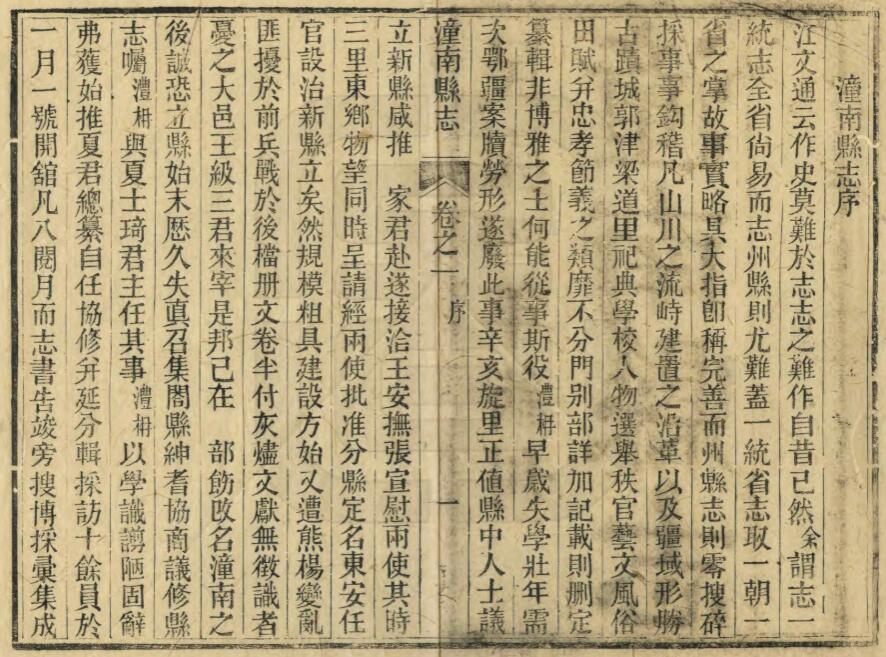 潼南縣志序
江文通云作史莫難於志志之難作自昔已然余謂志一
統志全省尙易而志州縣則尤難蓋一統省志取一朝一
省之掌故事實略具大指卽稱完善而州縣志則零搜碎
採事事鈎稽凡山川之流峙建置之沿革以及疆域形勝
古蹟城郭津梁道里祀典學校人物選舉秩官藝文風俗
田賦幷忠孝節義之類靡不分門別部詳加記載則删定
纂輯非博雅之士何能從事斯役澧枏早歲失學壯年需
次鄂疆案牘勞形遂廢此事辛亥旋里正値縣中人士議
潼南縣志 卷之一 序 一
立新縣咸推 家君赴遂接洽王安撫張宣慰兩使其時
三里東鄉物望同時呈請經兩使批准分縣定名東安任
官設治新縣立矣然規模粗具建設方始又遭熊楊變亂
匪擾於前兵戰於後檔册文卷半付灰燼文獻無徵識者
憂之大邑王級三君來宰是邦已在 部飭改名潼南之
後誠恐立縣始末歷久失眞召集閤縣紳耆協商議修縣
志囑澧枏與夏士琦君主任其事澧枏以學識譾陋固辭
弗獲始推夏君總纂自任協修幷延分輯採訪十餘員於
一月一號開舘凡八閱月而志書告竣旁搜博採彙集成